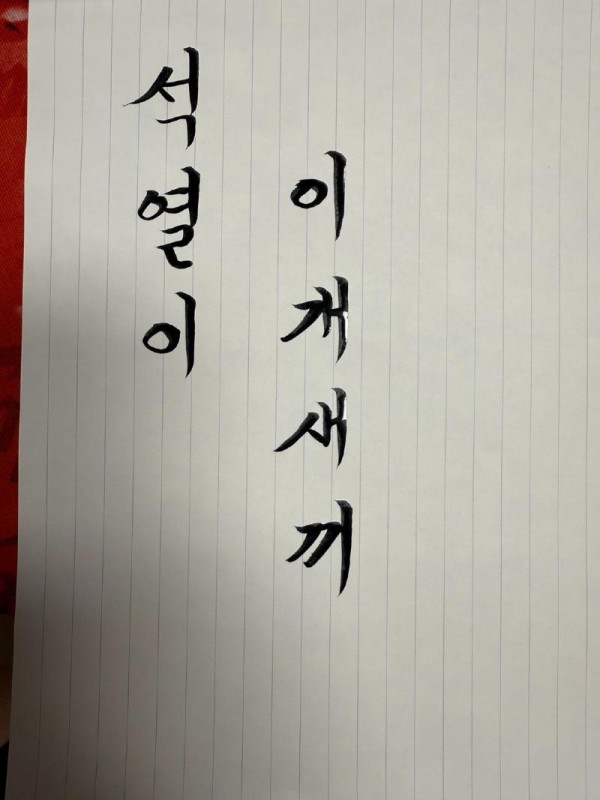 석열이
이개새끼